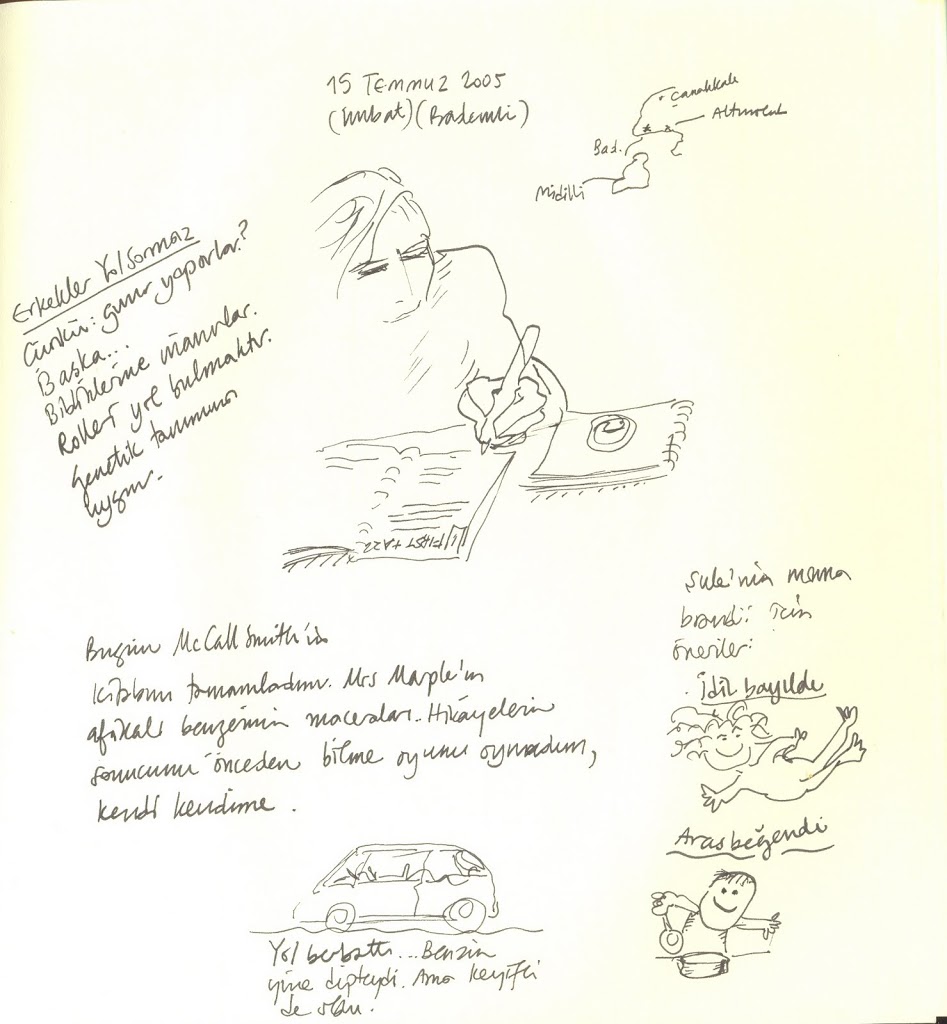 15 Temmuz 2005
(Imbat) (Bademli)
Çanakkale
Altınoluk
Bad.
Midilli
Erkekler Yol Sormaz
Çünkü: gurur yaparlar?
Başka...
Bildiklerine inanırlar.
Rolleri yol bulmaktır.
Genetik tanımına
uygun.
FIRST + AZZ
Bugün McCall Smith'in
kitabını tamamladım. Mrs Marple'ın
afrikalı benzerinin maceraları. Hikâyelerin
sonucunu önceden bilme oyunu oynadım,
kendi kendime.
Şule'nin mama
brandi için
öneriler:
. İdil bayıldı
Aras beğendi
Yol berbattı... Benzin
yine dipteydi. Ama keyifli
de oldu.